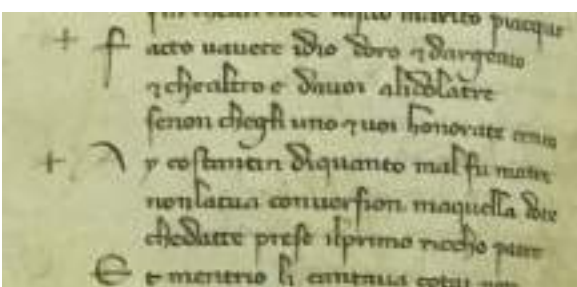 marito piacque
+ F acto uauete idio doro ⁊ dargento
⁊ chealtro e dauoi alidolatre
senon chegli uno ⁊ uoi honorate cento
+ A y costantin diquanto mal fu matre
non latua conuersion maquella dote
chedatte prese ilprimo riccho patre
E t mentrio li cantaua cotai